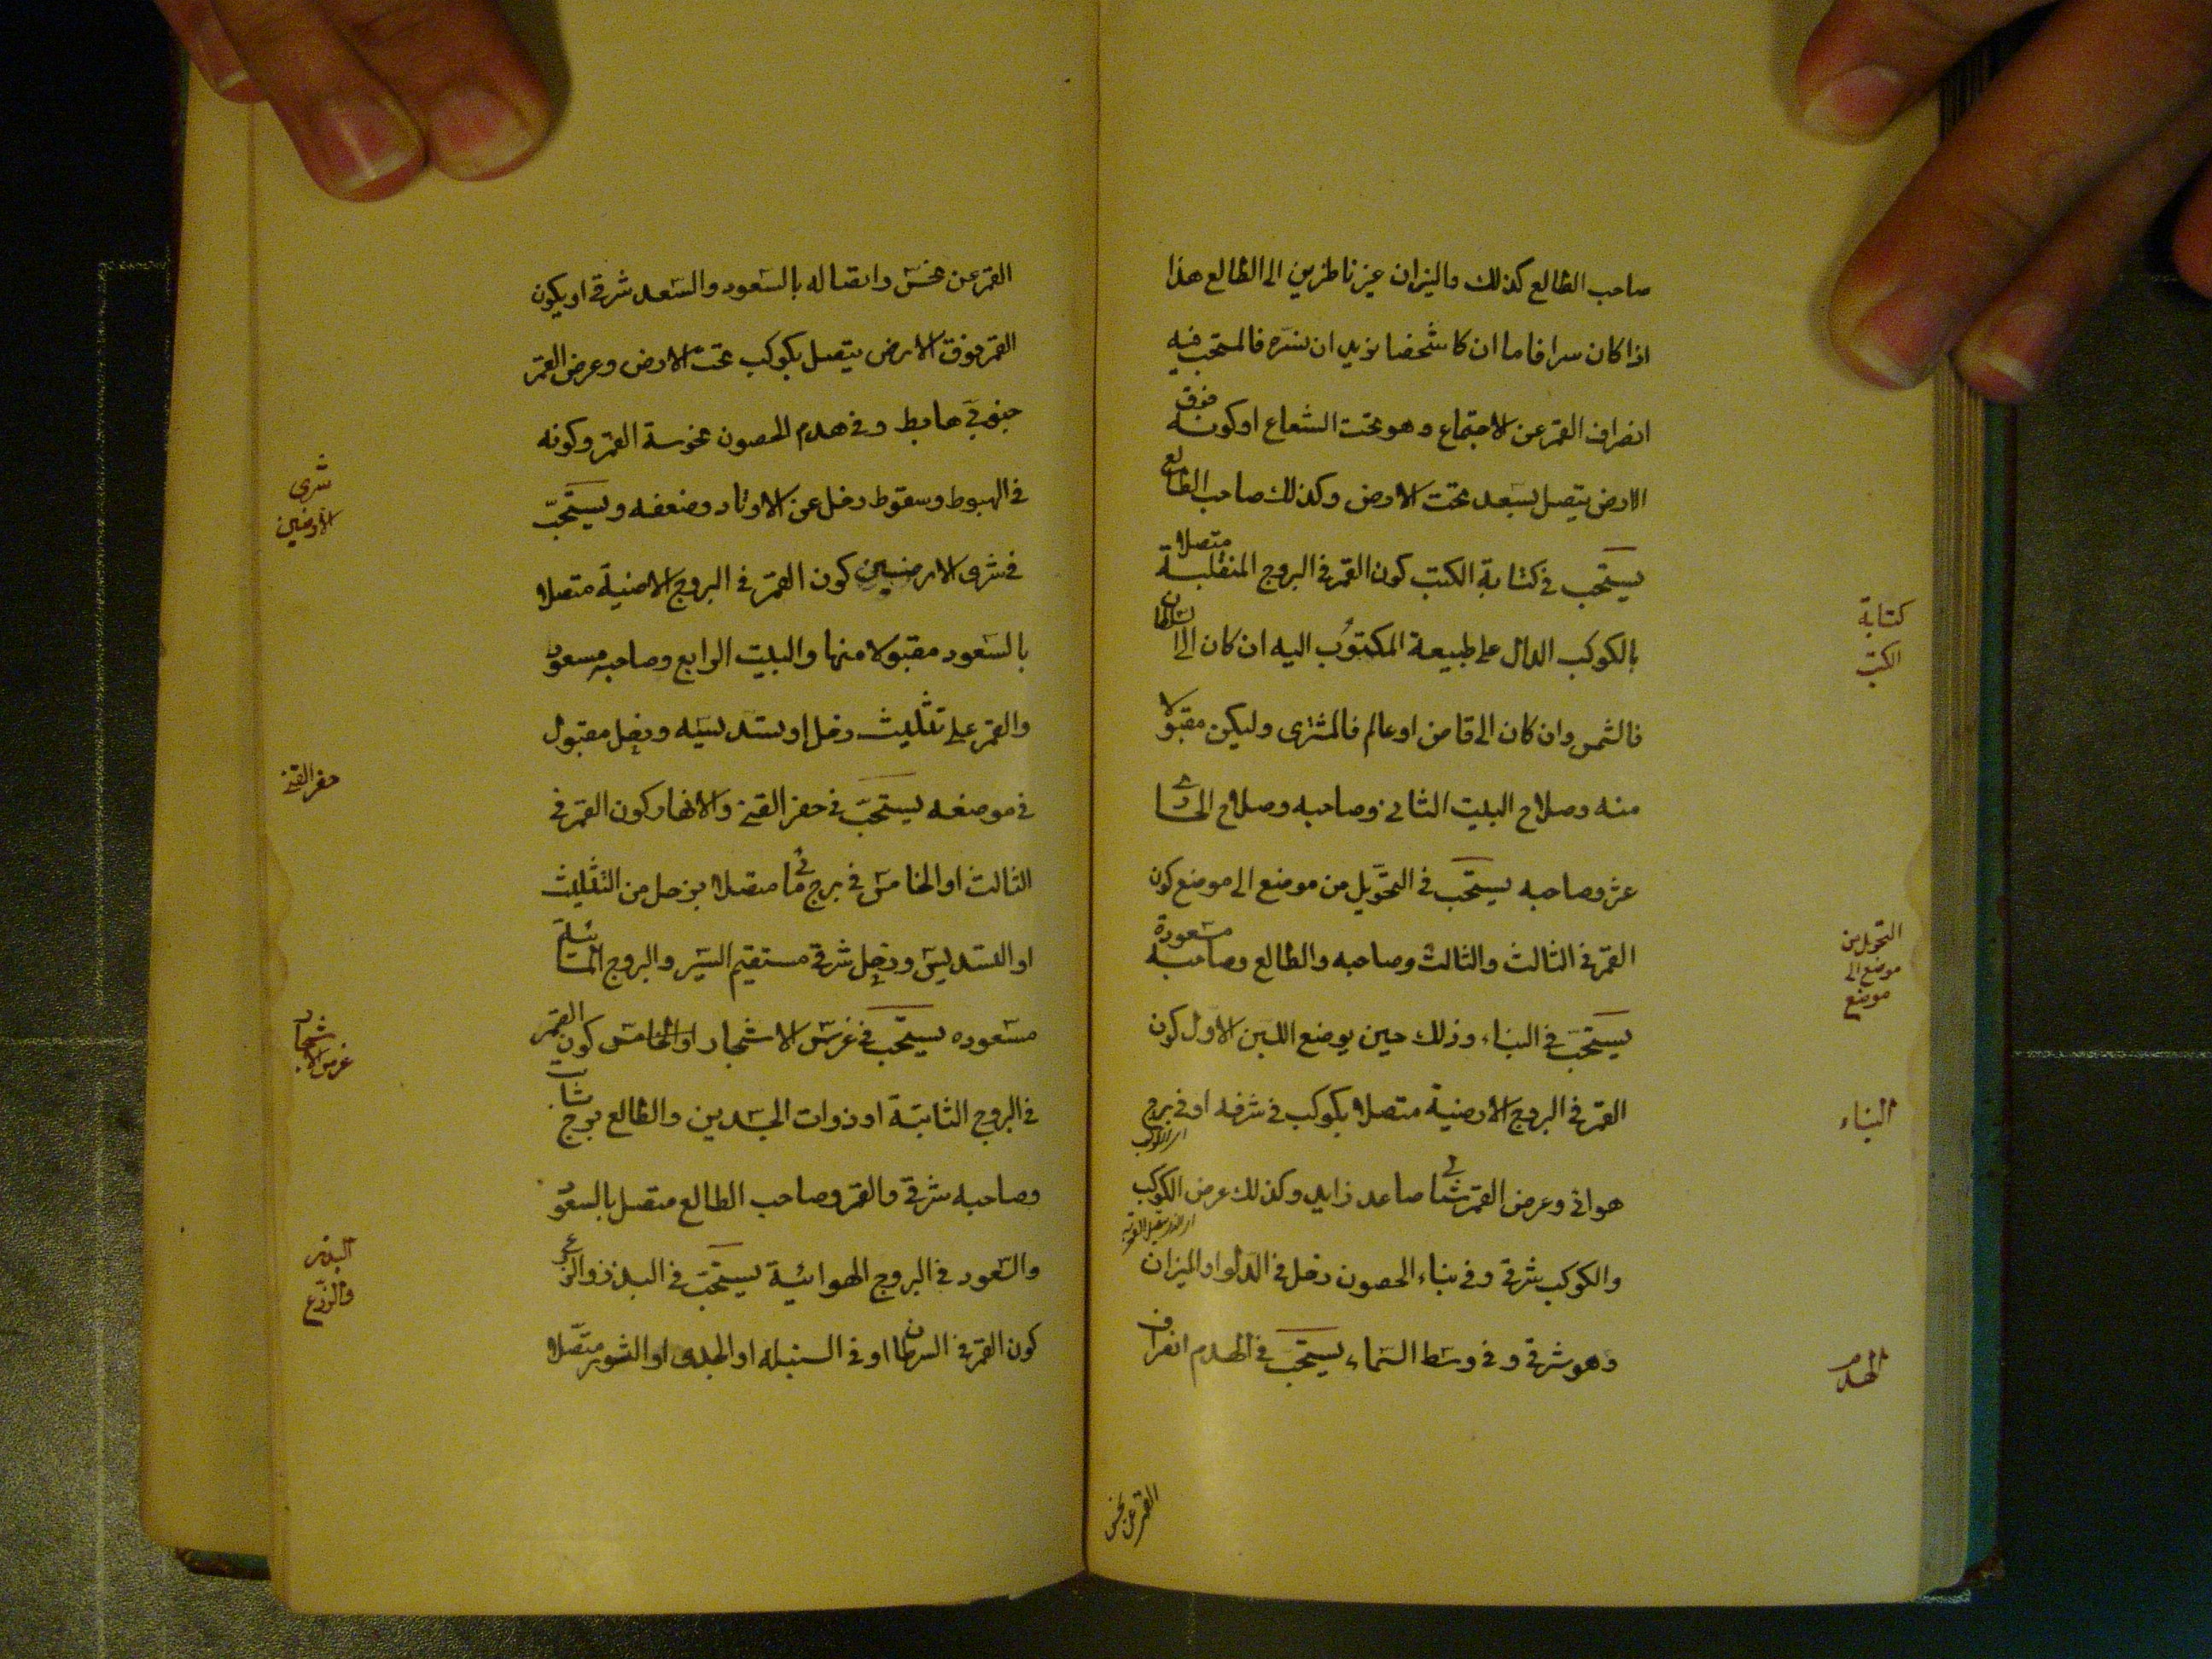 صاحب الطالع كذلك والنيران غير ناظرين الى الطالع هذا
اذا كان سرا فاما ان كا شخصا يريد ان يستره فالمستحب فيه
انصراف القمر عن الاجتماع وهو تحت الشعاع او كونه فوق
الارض يتصل بسعد تحت الارض وكذلك صاحب الطالع
يستحب فى كتابة الكتب كون القمر فى البروج المنقلبة متصلا
بالكوكب الدال على طبيعة المكتوب اليه ان كان الى السلطان
فالشمس وان كان الى قاض او عالم فالمشترى وليكن مقبولا
منه وصلاح البيت الثانى وصاحبه وصلاح الحادى
عشر وصاحبه يستحب فى التحويل من موضع الى موضع كون
القمر فى الثالث والثالث وصاحبه والطالع وصاحبه مسعودة
يستحب فى البناء وذلك حين يوضع اللبن الاول كون
القمر فى البروج الارضية متصلا بكوكب فى شرفه او فى برج
هوائى وعرض القمر شمالى صاعد زايد وكذلك عرض الكوكب
والكوكب شرقى وفى بناء الحصون زحل فى الدلو او الميزان
وهو شرقى وفى وسط السماء يستحب فى الهدم انصراف
كتابة
الكتب
التحويل من
موضع الى
موضع
البناء
الهدم
القمر عن نحس
القمر عن نحس واتصاله بالسعود والسعد شرقى او يكون
القمر فوق الارض يتصل بكوكب تحت الارض وعرض القمر
جنوبى هابط وفى هدم الحصون نحوسة القمر وكونه
فى الهبوط وسقوط زحل عن الاوتاد وضعفه ويستحب
فى شرى الارضيين كون القمر فى البروج الارضية متصلا
بالسعود مقبولا منها والبيت الرابع وصاحبه مسعود
والقمر على تثليث زحل او تسديسه وزحل مقبول
فى موضعه يستحب فى حفر القنى والانهار كون القمر فى
الثالث او الخامس فى برج مائى متصلا بزحل من التثليث
او التسديس وزحل شرقى مستقيم السير والبروج المائية
مسعوده يستحب فى غرس الاشجار او الخامس كون القمر
فى البروج الثابتة او ذوات الجسدين والطالع برج ثابت
وصاحبه شرقى والقمر وصاحب الطالع متصل بالسعود
والسعود فى البروج الهوائية يستحب فى البذر والزرع
كون القمر فى السرطان او فى السنبلة او الجدى او الثور متصلا
شرى
الارضين
حفر القنى
غرس الاشجار
البذر
والزرع